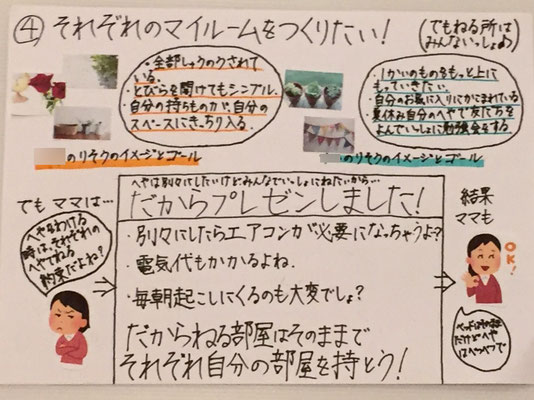 ④ それぞれのマイルームをつくりたい!
(でもねる所は
みんないっしょ♪)
・全部しゅうのうされて
いる。
・とびらを開けてもシンプル。
・自分の持ちものが、自分の
スペースにきっちり入る。
のりそうのイメージとゴール
・1かいのものをもっと上に
もっていきたい。
・自分のお気に入りにかこまれている
・夏休み自分のへやで友だちを
よんでいっしょに勉強会をする
のりそうのイメージとゴール
でも ママは…
へやをわける
時は、それぞれの
へやでねる
約束だよね?
へやは別々にしたいけど、みんなでいっしょにねたいから…
だからプレゼンしました!
・別々にしたらエアコンが必要になっちゃうよ?
・電気代もかかるよね。
・毎朝起こしにくるのも大変でしょ?
だからねる部屋はそのままで
それぞれ自分の部屋を持とう!
結果
ママも
OK!
だけどへや
はべつべつで